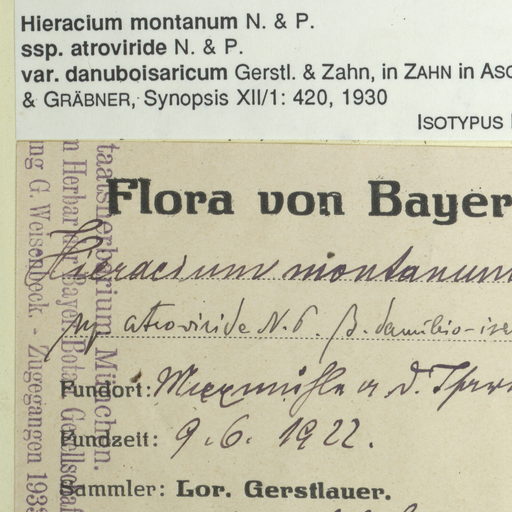 Hieracium montanum N. & P.
ssp. atroviride N. & P.
var. danuboisaricum Gerstl. & Zahn, in ZAHN in ASC
& GRÄBNER, Synopsis XII/1: 420, 1930
ISOTYPUS
Flora von Bayer
Hieracium montanum
ssp atroviride N. P. β. danubio-isa
Fundort: a. d. Isar
Fundzeit: 9. 6. 1922.
Sammler: Lor. Gerstlauer.
Staatsherbarium München.
m Herbar der Bayer. Botan. Gesellschaf
ng G. Weisenbeck. - Zugegangen 193